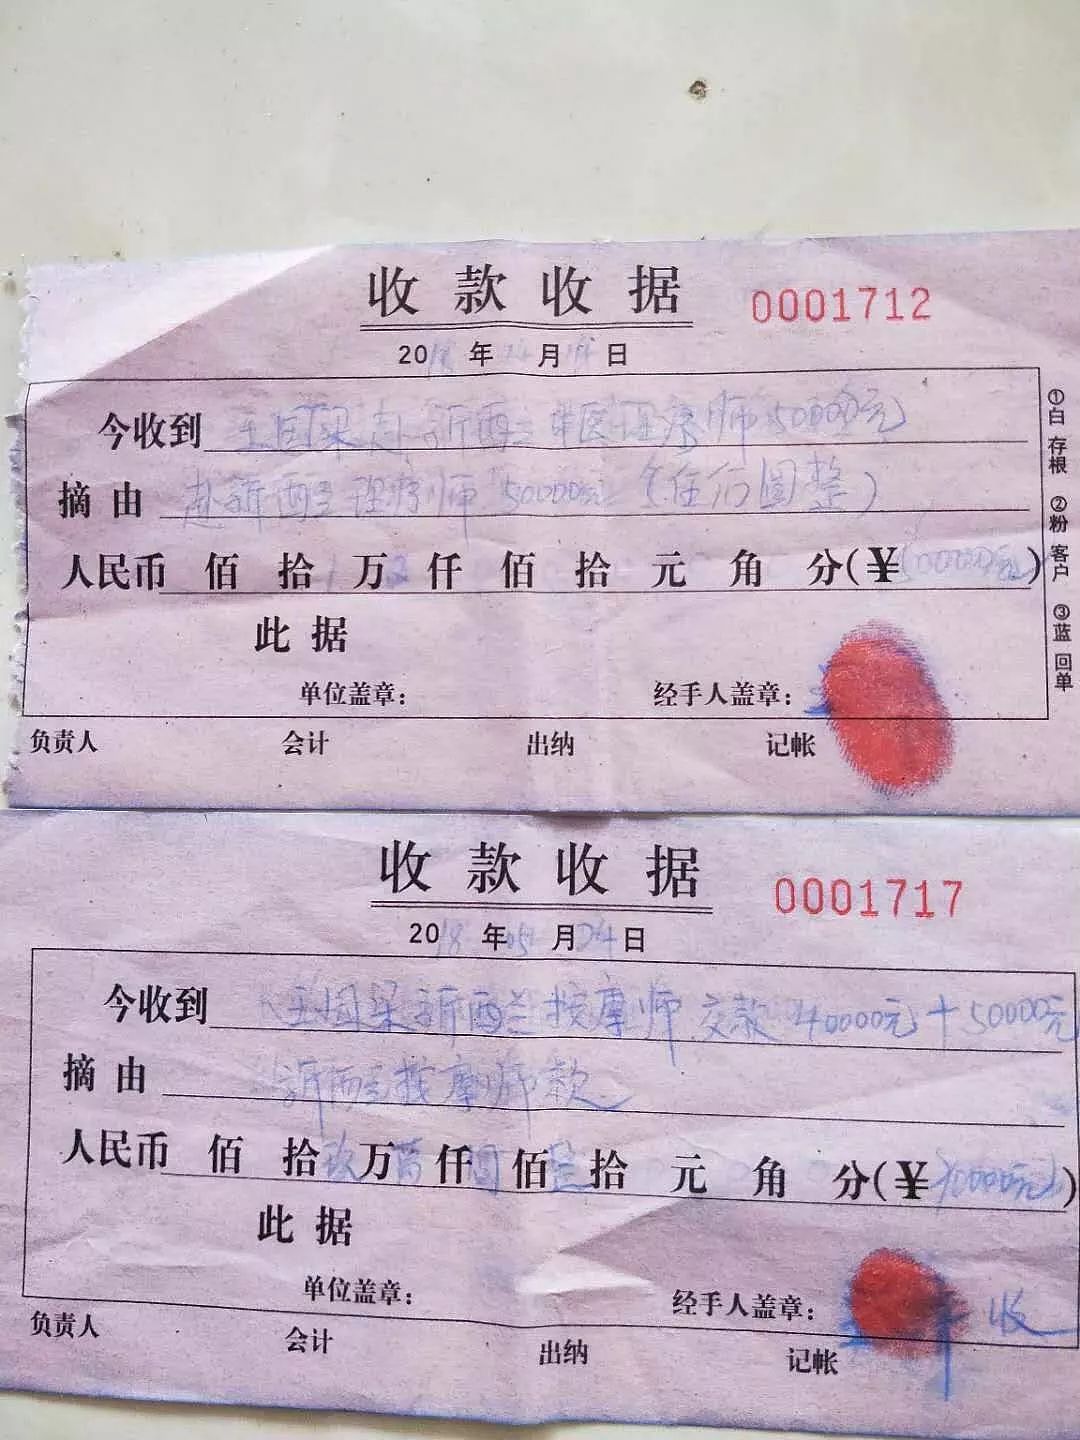 收款收据
0001712
20 年 月 日
今收到 王国梁赴新西兰中医理疗师50000元
摘由 赴新西兰理疗师50000元(伍万圆整)
人民币 佰 拾 万 仟 佰 拾 元 角 分(¥50000元)
此据
单位盖章: 经手人盖章:
负责人 会计 出纳 记帐
①白 存根 ②粉 客户 ③蓝 回单
收款收据
0001717
2018年05月24日
今收到 王国梁新西兰按摩师交款40000元+50000元
摘由 新西兰按摩师款
人民币 佰 拾玖万 仟圆佰整拾 元 角 分(¥90000元)
此据
单位盖章: 经手人盖章: 收
负责人 会计 出纳 记帐